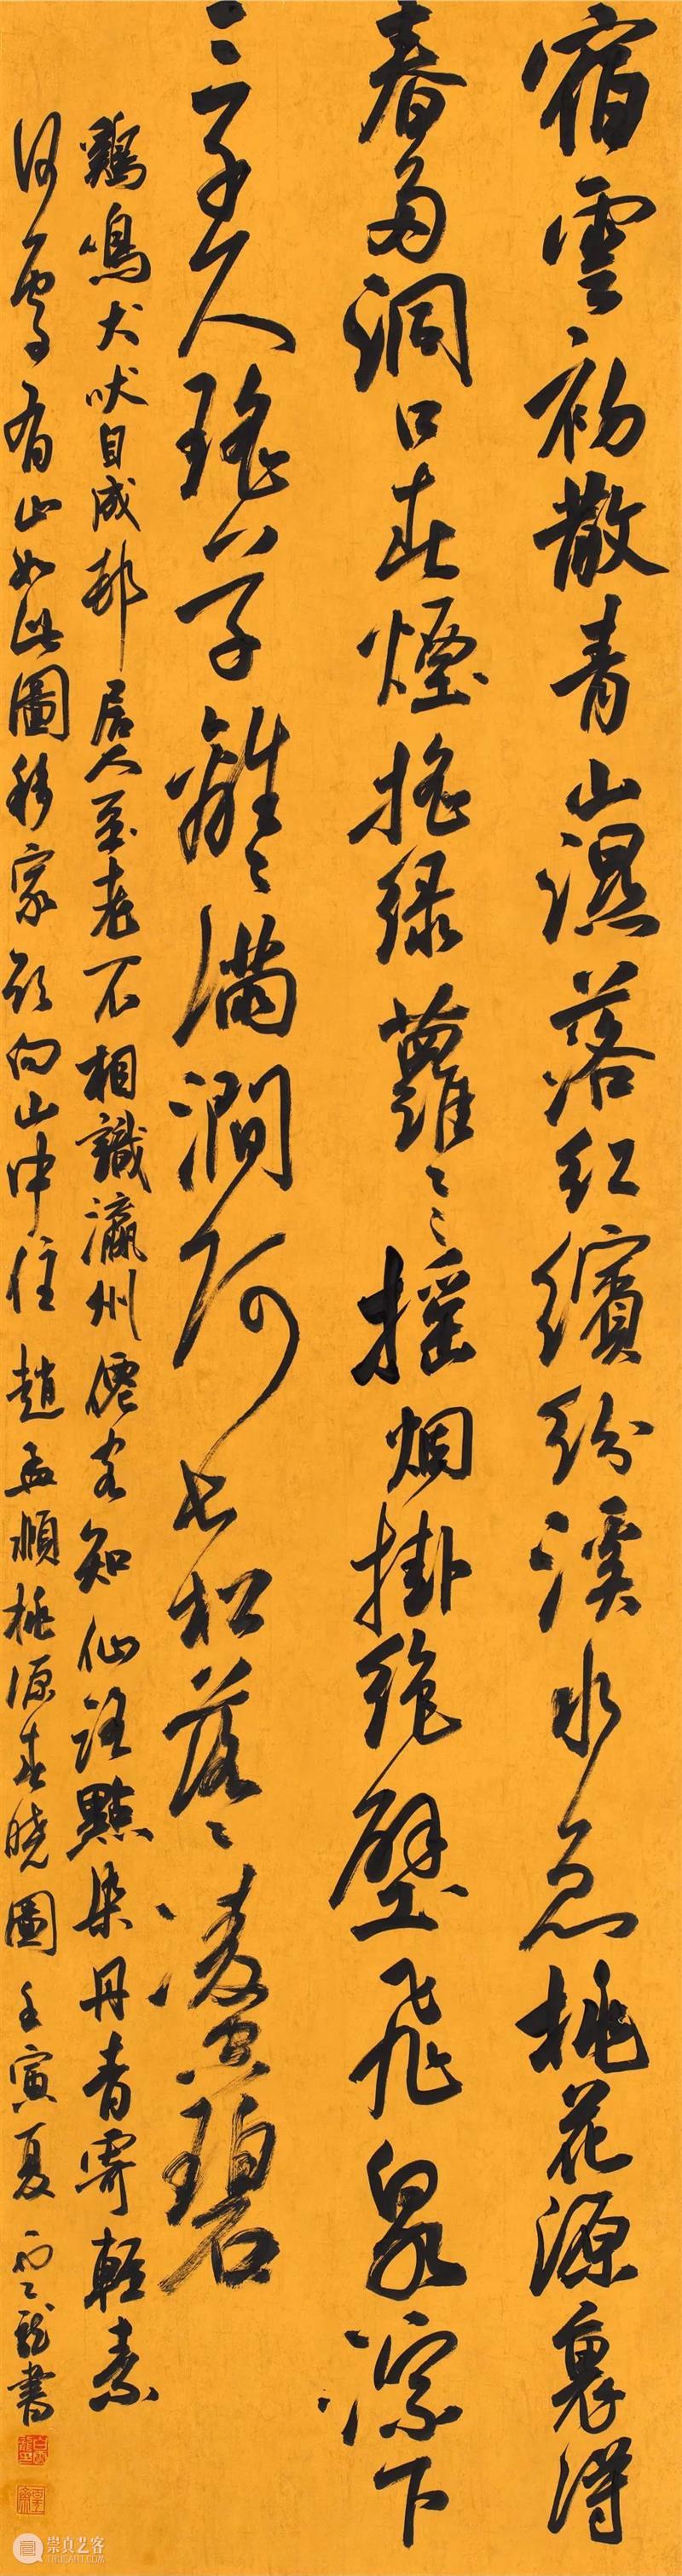 宿雲初散青山濕落紅繽紛溪水急桃花源裏得
春多洞口春煙搖綠蘿〻〻搖烟掛絕壁飛泉淙下
三千尺瑤草離〻滿澗阿長松落〻凌空碧
鷄鳴犬吠自成邨居人至老不相識瀛州僊客知仙路點染丹青寄輕素
何處有山如此圖移家欲向山中住趙孟頫桃源春曉圖壬寅夏書
崇真艺客
TRUEART.COM